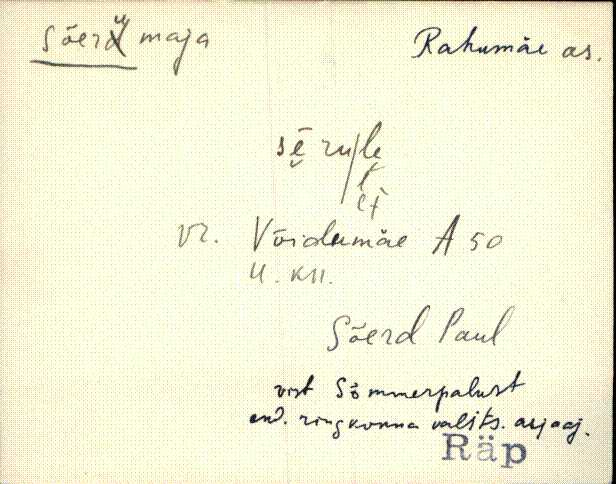 Sõeru maja
Rahumäe as.
sēru/le
t
et
vr. Võidumäe A 50
u. KM.
Sõerd Paul
vist Sõmmerpalust
end. ringkonna valits. asjaaj.
Räp